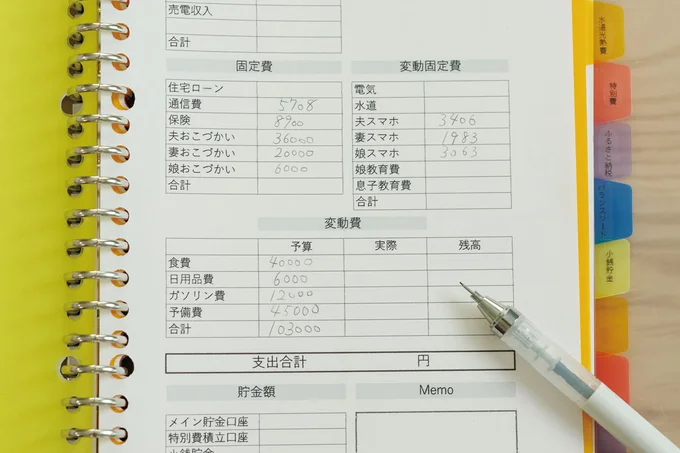 売電収入
合計
固定費
住宅ローン
通信費 5708
保険 8900
夫おこづかい 36000
妻おこづかい 20000
娘おこづかい 6000
合計
変動固定費
電気
水道
夫スマホ 3406
妻スマホ 1983
娘スマホ 3063
娘教育費
息子教育費
合計
変動費
予算 実際 残高
食費 40000
日用品費 6000
ガソリン費 12000
予備費 45000
合計 103000
支出合計 円
貯金額
メイン貯金口座
特別費積立口座
小銭貯金
Memo
水道光熱費
特別費
ふるさと納税
バランスシート
小銭貯金